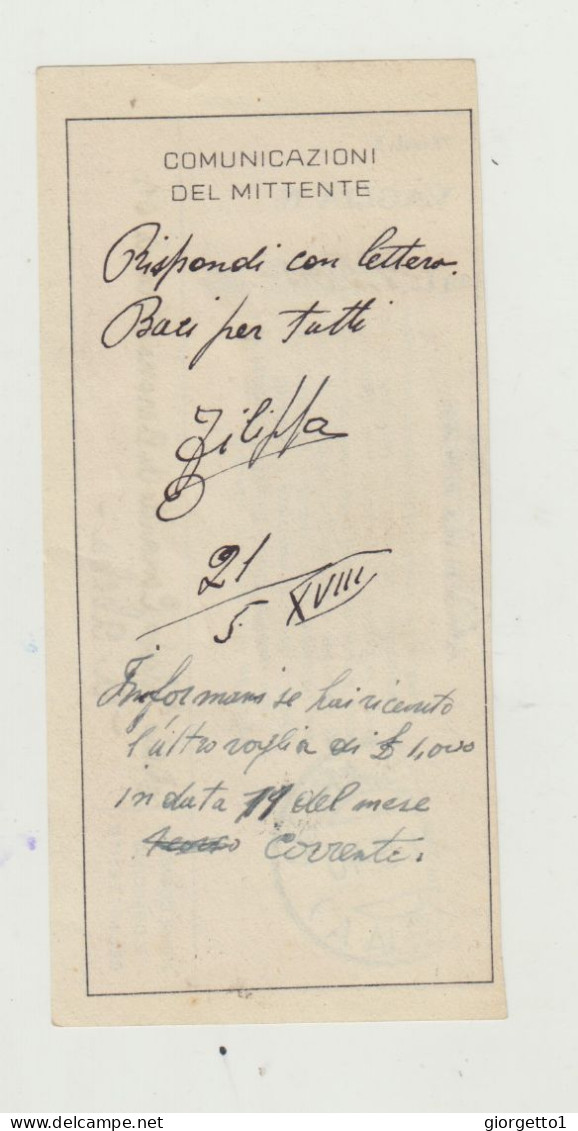 COMUNICAZIONI
DEL MITTENTE
Rispondi con lettera.
Baci per tutti
Filippa
21
5 XVIII
Informami se hai ricevuto
l'altro voglia di £ 1,000
in data 19 del mese
corrente.
delcampe.net
giorgetto1